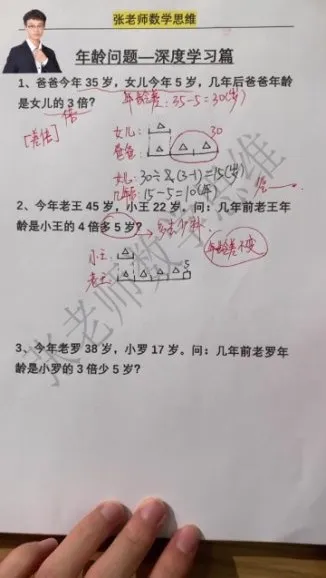 张老师数学思维
年龄问题—深度学习篇
1、爸爸今年 35 岁，女儿今年 5 岁，几年后爸爸年龄
是女儿的 3 倍？
年龄差：35-5=30(岁)
倍
[差倍]
女儿：
30
爸爸：
女儿：30÷(3-1)=15(岁)
几年后：15-5=10(年)
答
2、今年老王 45 岁，小王 22 岁。问：几年前老王年
龄是小王的 4 倍多 5 岁？
年龄差不变
小王
5
老王
张老师数学思维
3、今年老罗 38 岁，小罗 17 岁。问：几年前老罗年
龄是小罗的 3 倍少 5 岁？